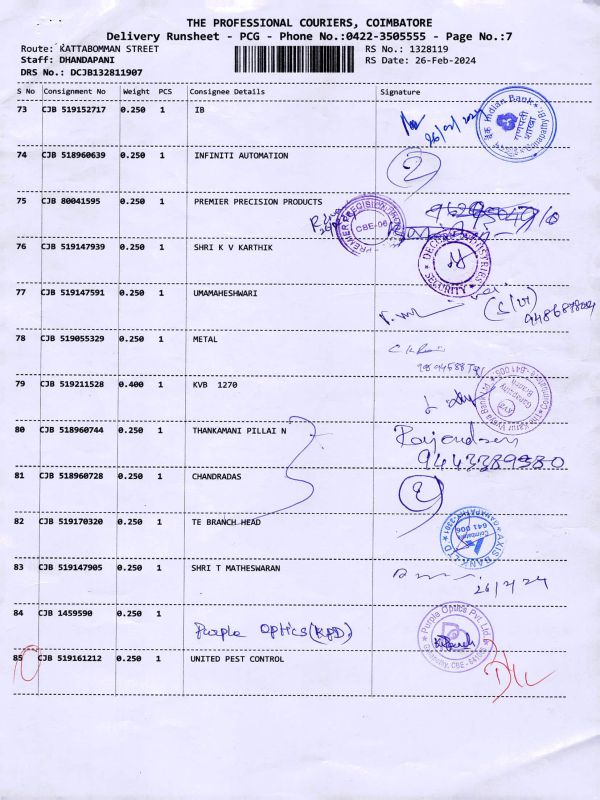 THE PROFESSIONAL COURIERS, COIMBATORE
Delivery Runsheet - PCG - Phone No.:0422-3505555 - Page No.:7
Route: KATTABOMMAN STREET RS No.: 1328119
Staff: DHANDAPANI RS Date: 26-Feb-2024
DRS No.: DCJB132811907
S No Consignment No Weight PCS Consignee Details Signature
73 CJB 519152717 0.250 1 IB 26/02/2024
Indian Bank
74 CJB 518960639 0.250 1 INFINITI AUTOMATION
75 CJB 80041595 0.250 1 PREMIER PRECISION PRODUCTS
PREMIER PRECISION CBE-06
76 CJB 519147939 0.250 1 SHRI K V KARTHIK
INDUSTRIES SECURITY
77 CJB 519147591 0.250 1 UMAMAHESHWARI
78 CJB 519055329 0.250 1 METAL
79 CJB 519211528 0.400 1 KVB 1270
80 CJB 518960744 0.250 1 THANKAMANI PILLAI N
9443389580
81 CJB 518960728 0.250 1 CHANDRADAS
82 CJB 519170320 0.250 1 TE BRANCH HEAD
AXIS BANK LTD Coimbatore 641 006
83 CJB 519147905 0.250 1 SHRI T MATHESWARAN 26/2/24
84 CJB 1459590 0.250 1
Purple Optics (KPD)
Purple Optics Pvt Ltd
85 CJB 519161212 0.250 1 UNITED PEST CONTROL